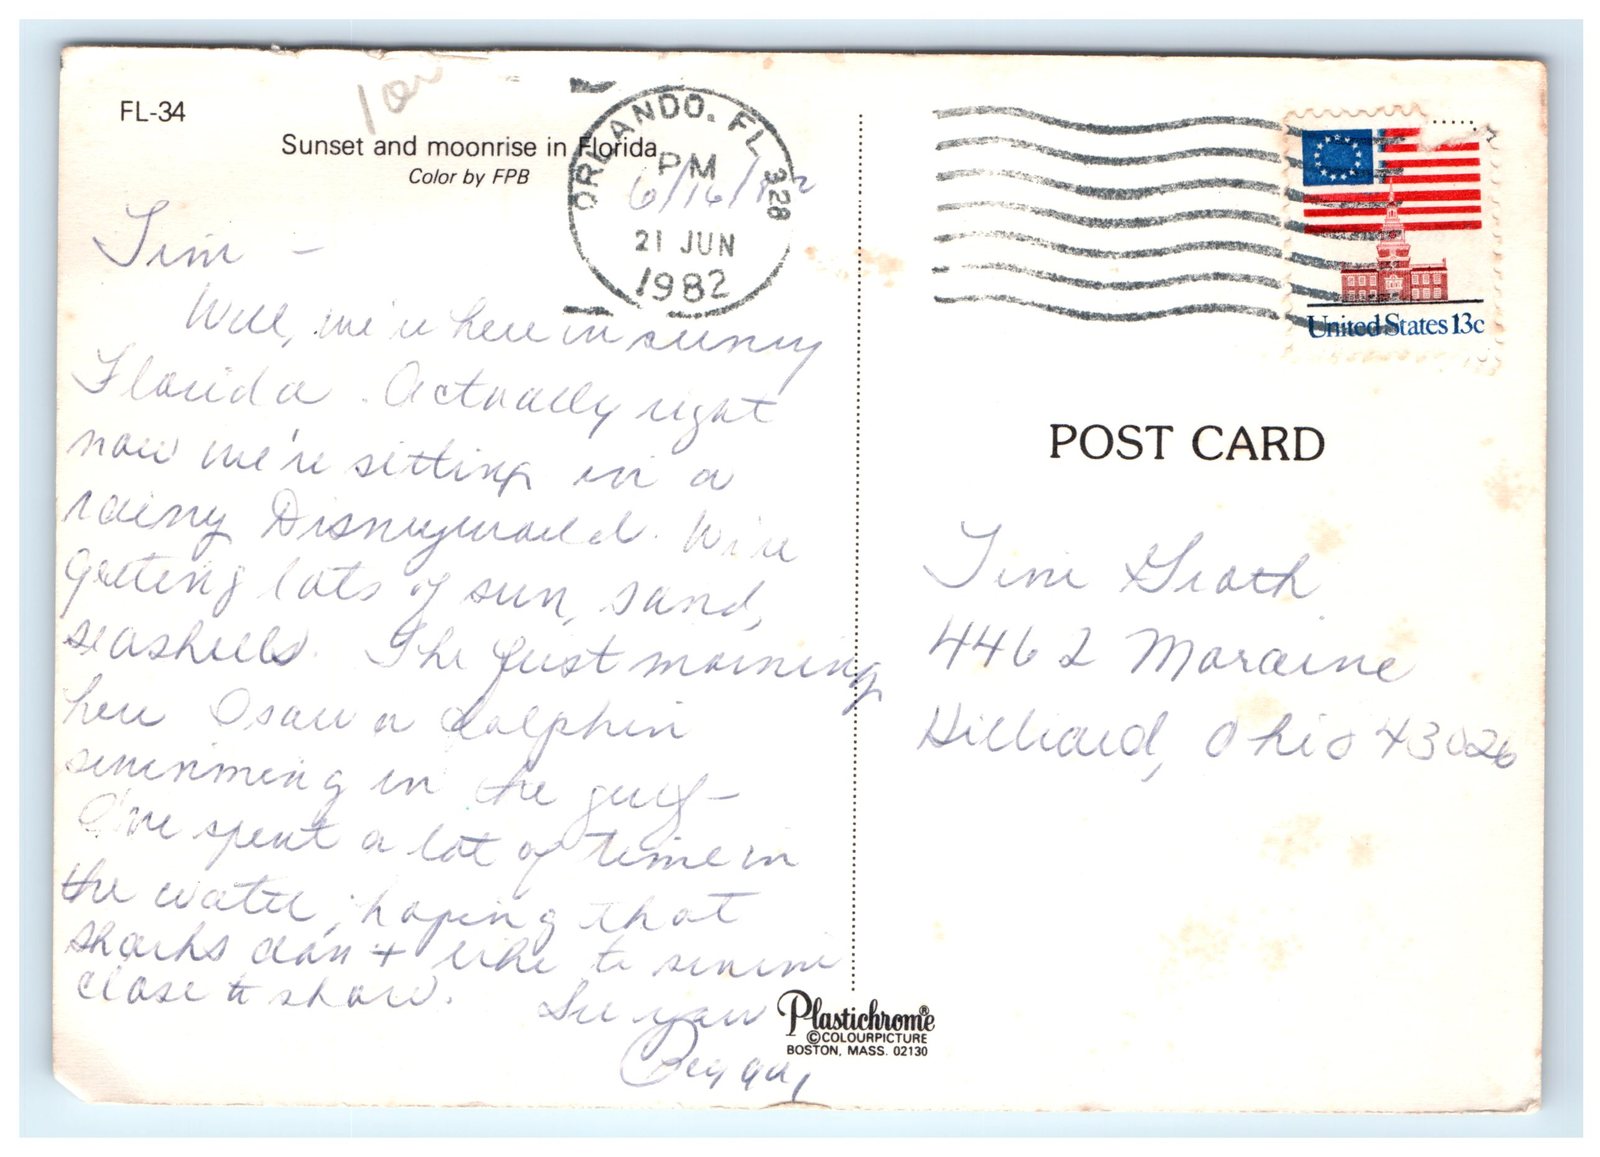 FL-34
Sunset and moonrise in Florida
Color by FPB
ORLANDO, FL 328
PM
21 JUN
1982
6/16/82
Tim -
Well, we're here in sunny
Florida. Actually right
now we're sitting in a
rainy Disneyworld. We're
getting lots of sun, sand,
seashells. The first morning
here I saw a dolphin
swimming in the gulf-
I've spent a lot of time in
the water, hoping that
sharks don't like to swim
close to shore.
See you
Peggy
United States 13c
POST CARD
Tim Groth
4462 Moraine
Hilliard, Ohio 43026
Plastichrome®
©COLOURPICTURE
BOSTON, MASS. 02130